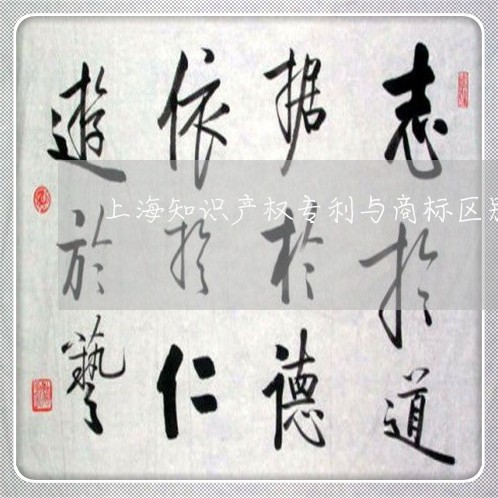 志於道
据於德
依於仁
遊於藝
上海知识产权专利与商标区